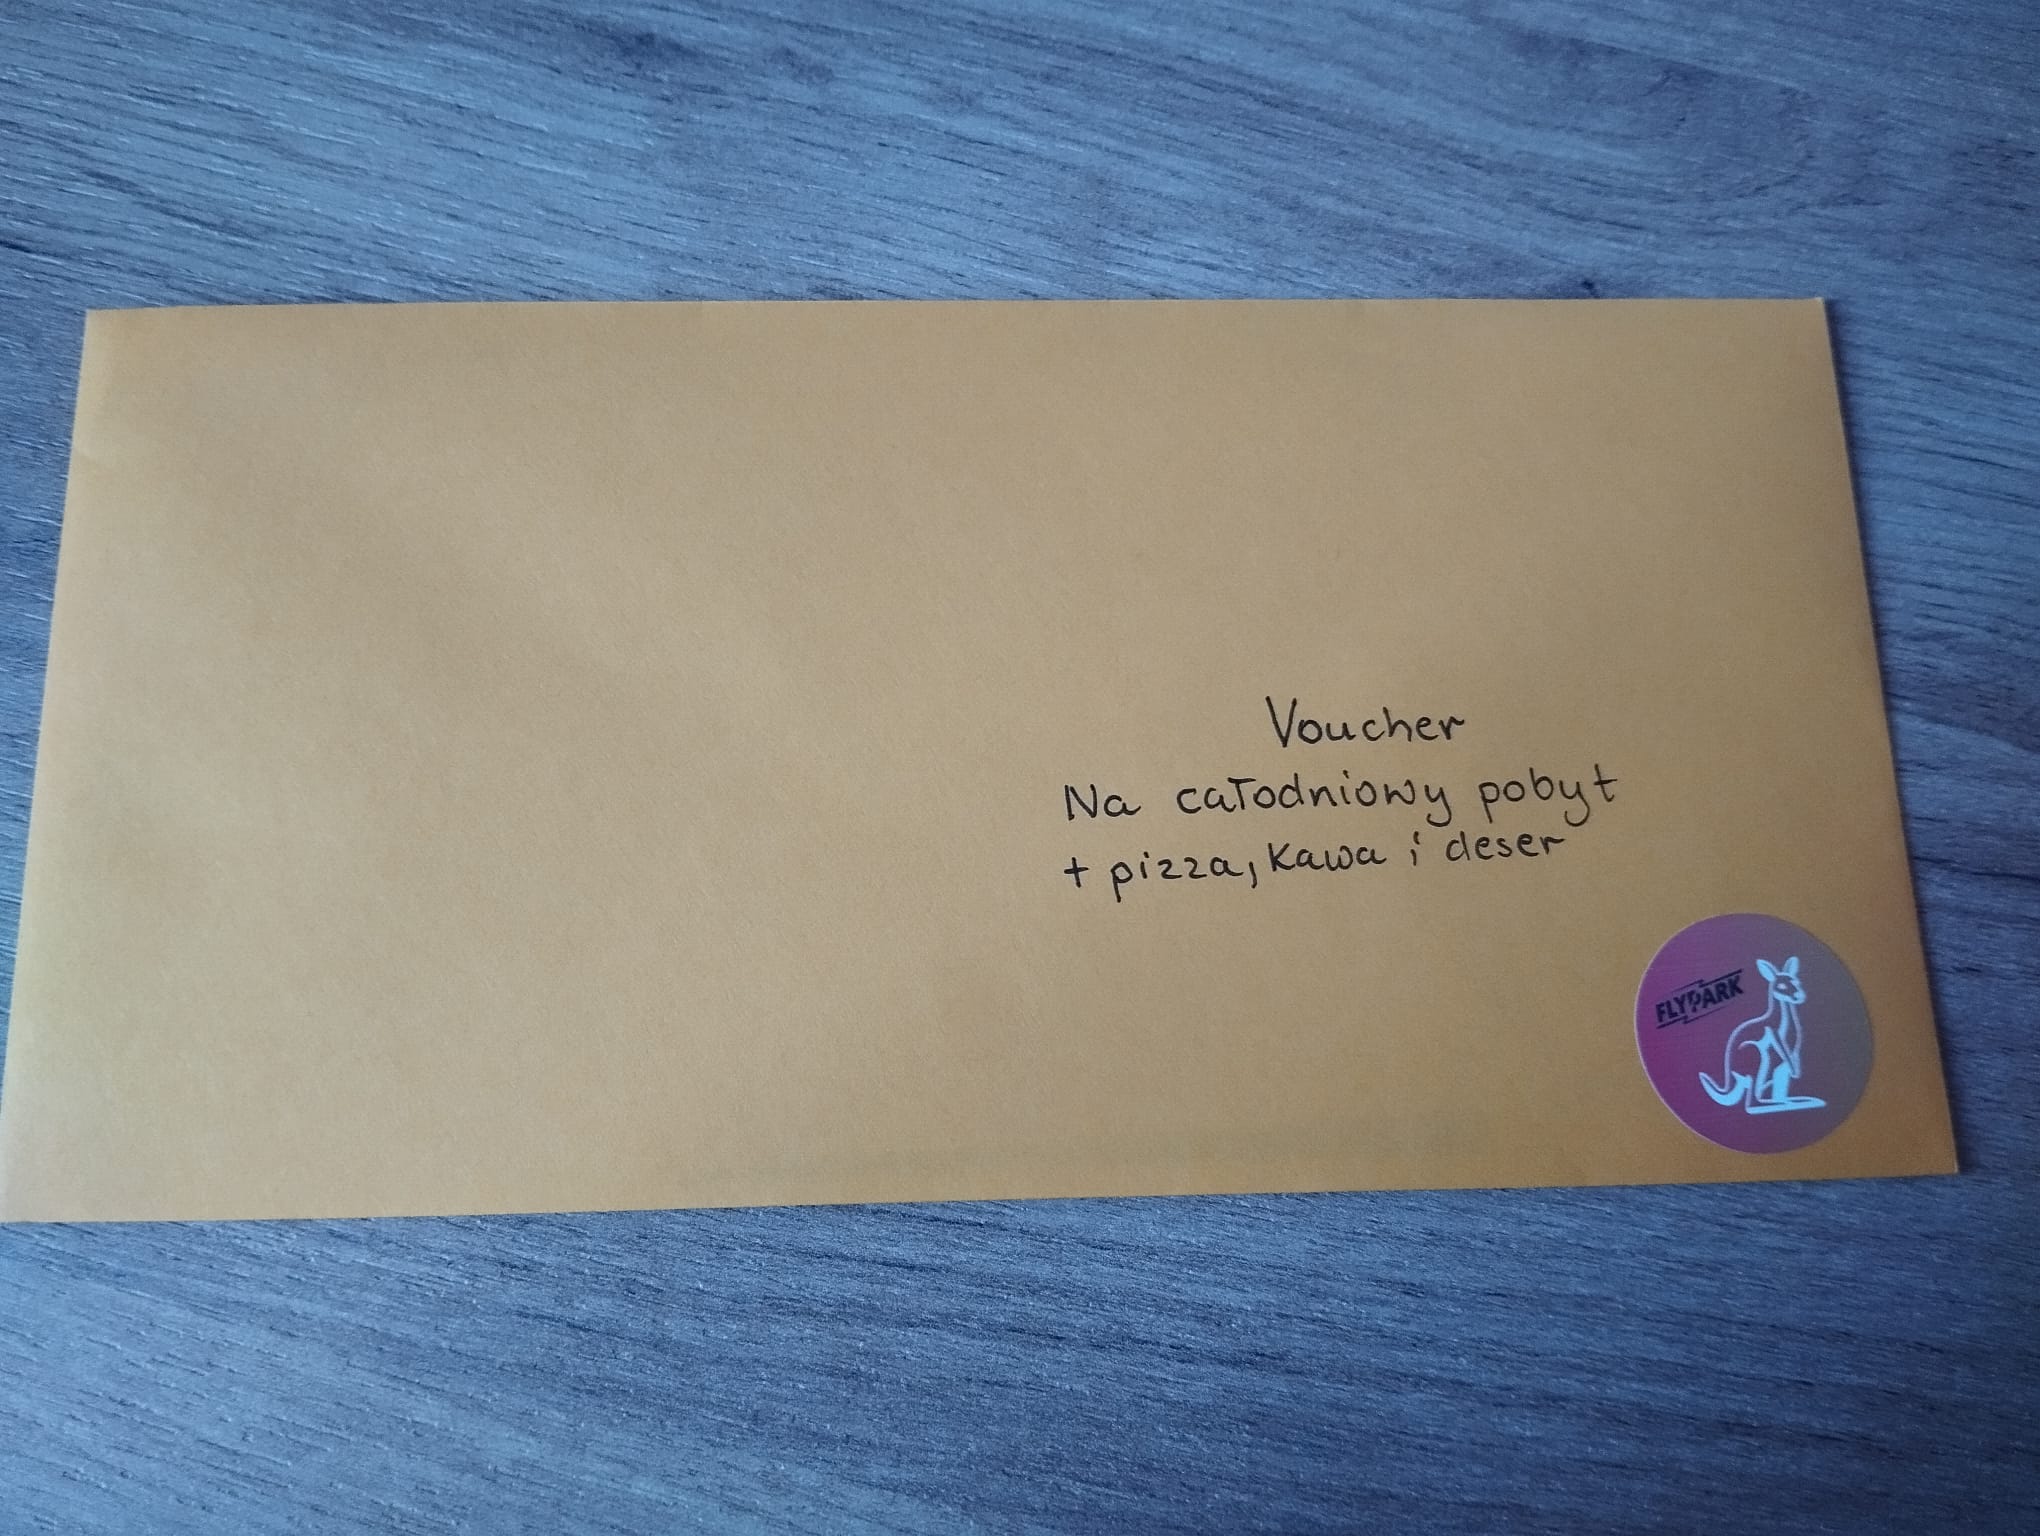 Voucher
Na całodniowy pobyt
+ pizza, kawa i deser
FLYPARK